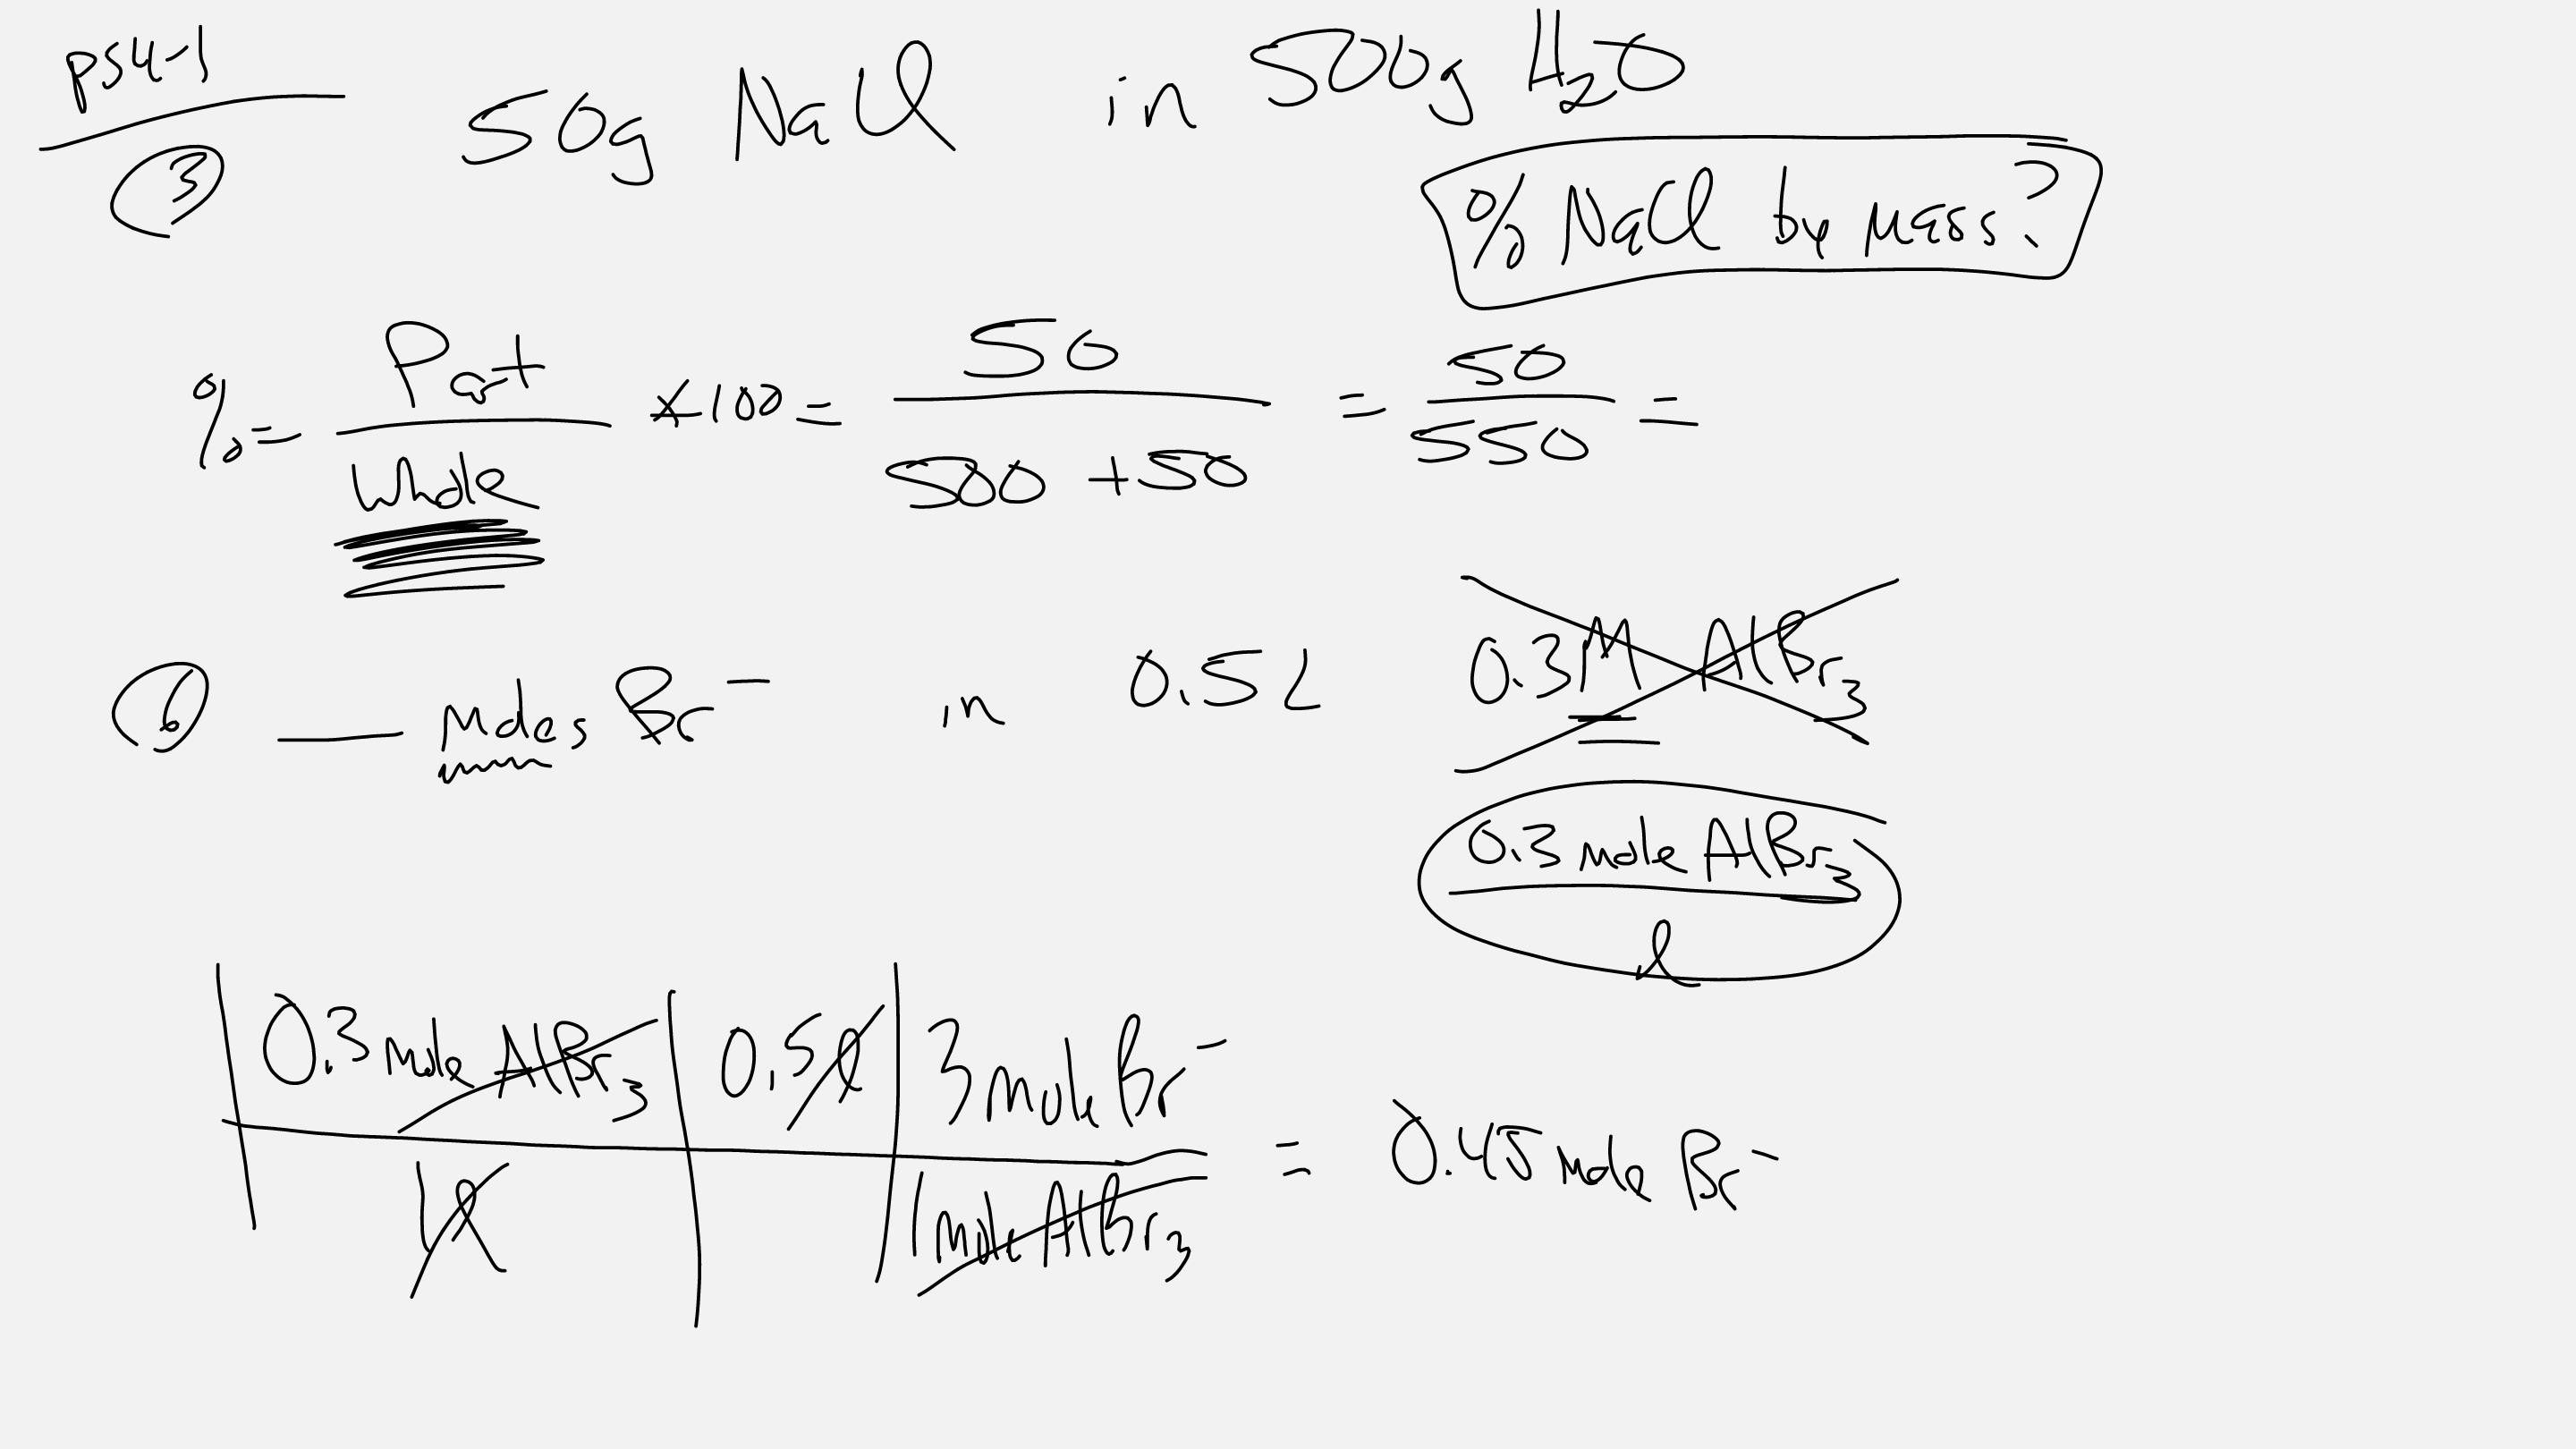 ps4-1
50g NaCl in 500g H₂O
③
% NaCl by mass?
% = Part/Whole × 100 = 50/(500 + 50) = 50/550 =
⑥ ___ moles Br⁻ in 0.5 L 0.3 M AlBr₃
0.3 mole AlBr₃
l
0.3 mole AlBr₃ | 0.5 l | 3 mole Br⁻
1 l | 1 mole AlBr₃ = 0.45 mole Br⁻